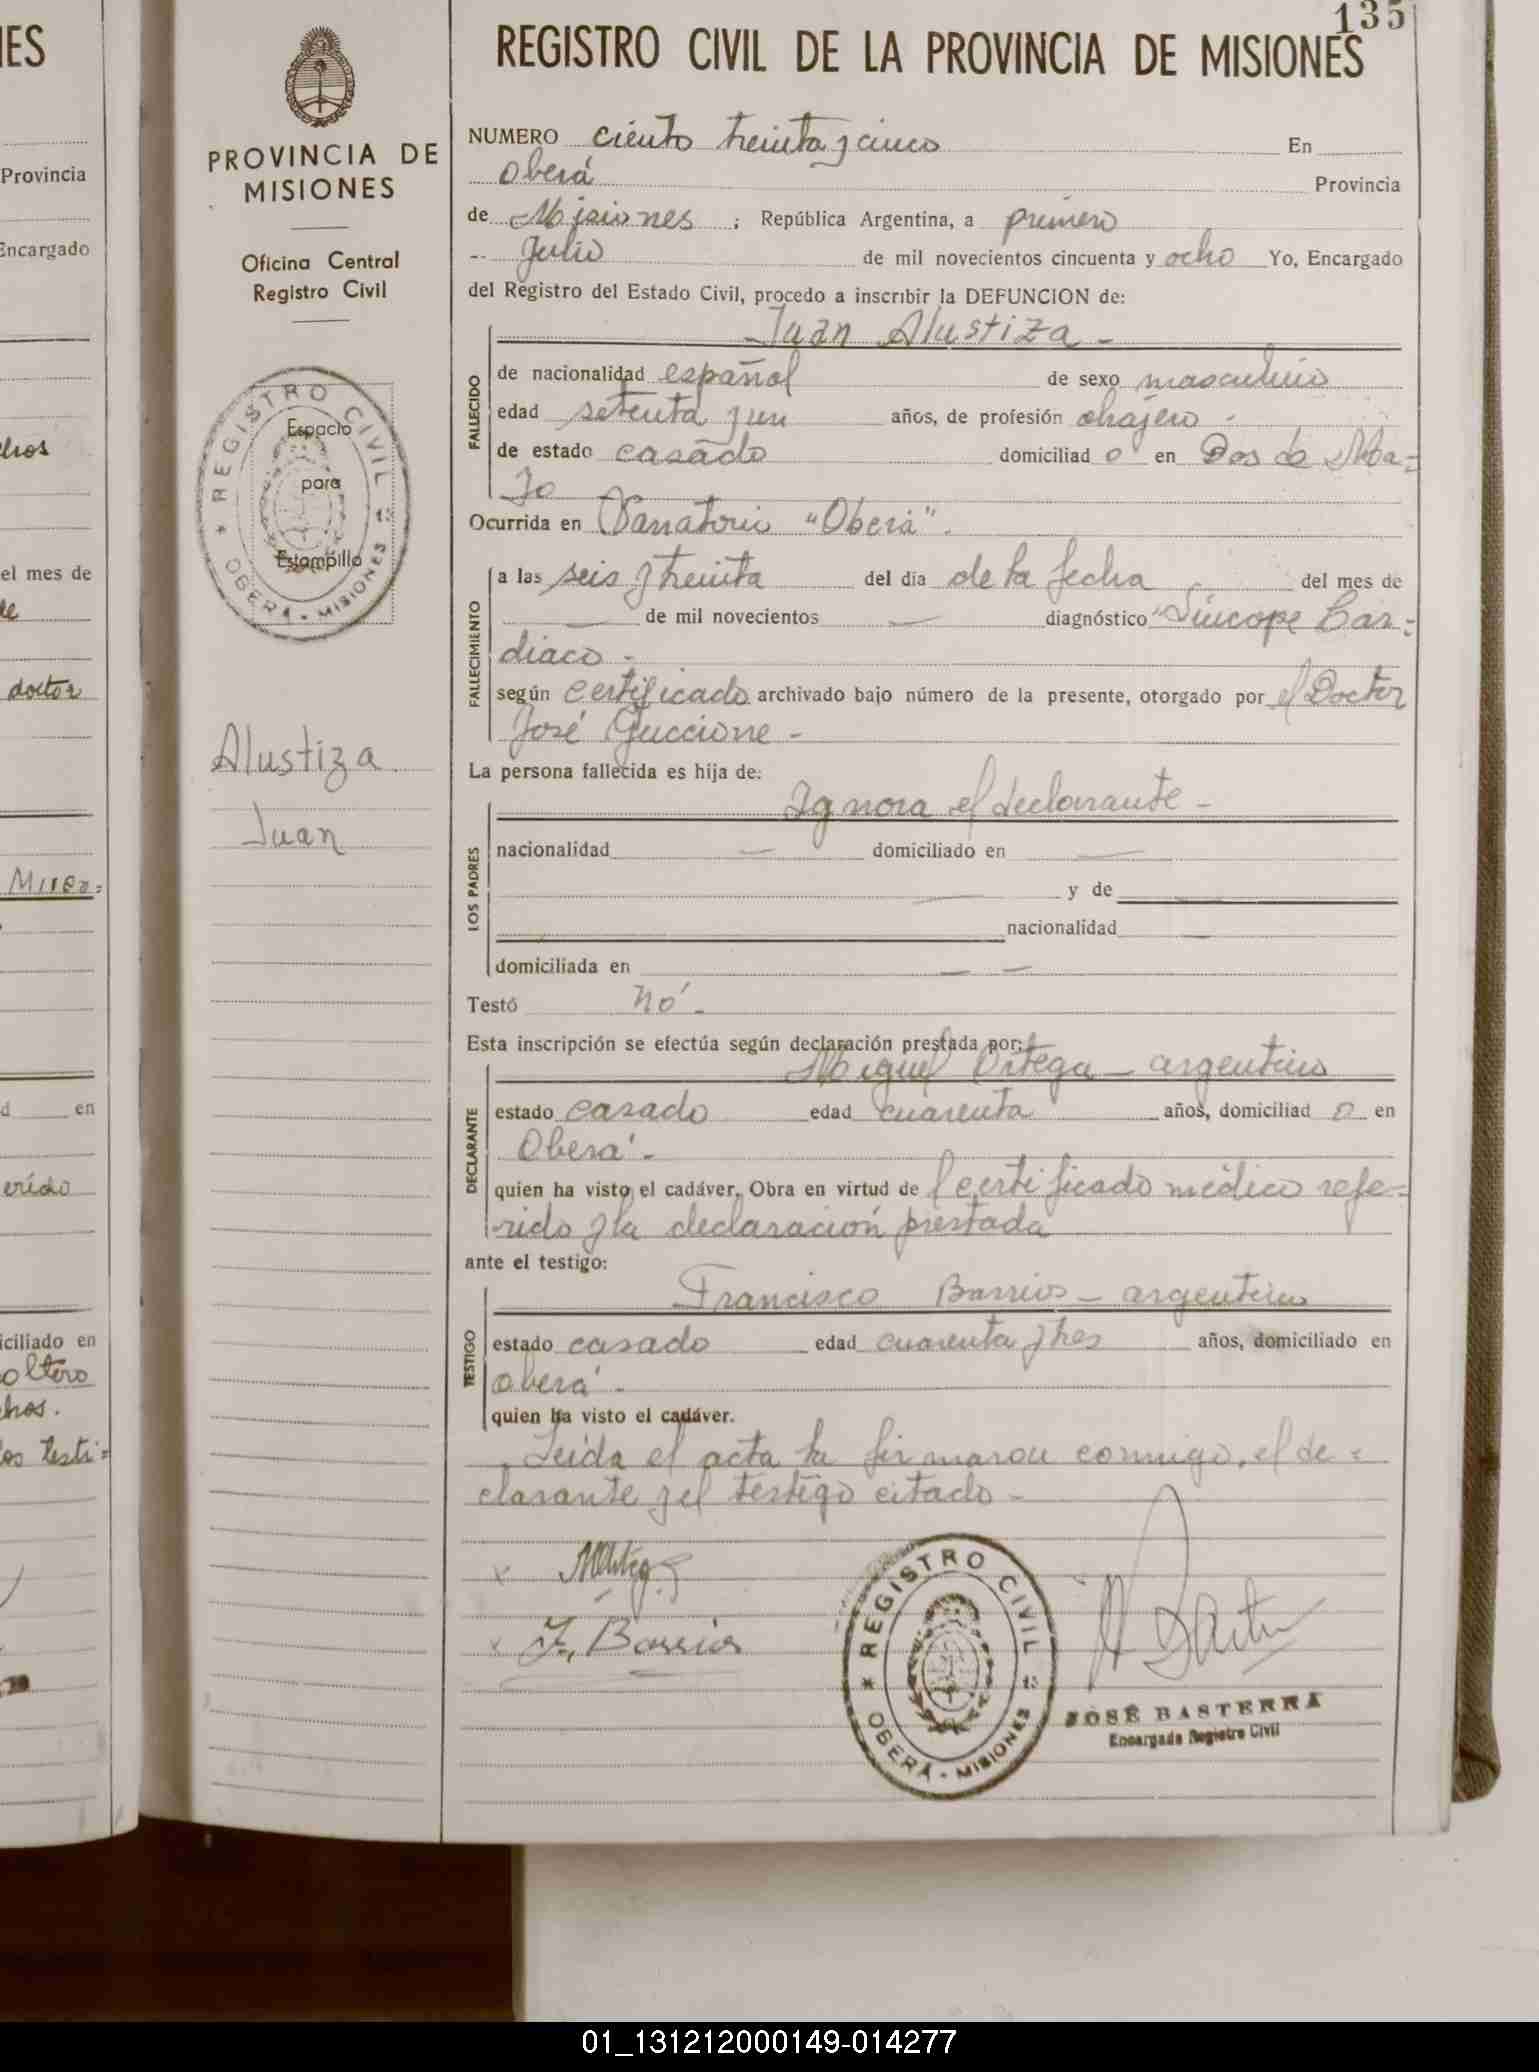 135
REGISTRO CIVIL DE LA PROVINCIA DE MISIONES
PROVINCIA DE
MISIONES
Oficina Central
Registro Civil
REGISTRO CIVIL
OBERÁ - MISIONES
Espacio
para
Estampilla
Alustiza
Juan
NUMERO ciento treinta y cinco En
Oberá Provincia
de Misiones ; República Argentina, a primero
Julio de mil novecientos cincuenta y ocho Yo, Encargado
del Registro del Estado Civil, procedo a inscribir la DEFUNCION de:
Juan Alustiza -
FALLECIDO
de nacionalidad español de sexo masculino
edad setenta y un años, de profesión
de estado casado domiciliad o en Dos de Ma=
yo
Ocurrida en Sanatorio "Oberá".
FALLECIMIENTO
a las seis y treinta del día de la fecha del mes de
de mil novecientos diagnóstico Síncope Car=
diaco -
según certificado archivado bajo número de la presente, otorgado por el Doctor
José Guccione -
La persona fallecida es hija de:
Ignora el declarante -
LOS PADRES
nacionalidad domiciliado en
y de
nacionalidad
domiciliada en
Testó nó -
Esta inscripción se efectúa según declaración prestada por:
Miguel Ortega - argentino
DECLARANTE
estado casado edad cuarenta años, domiciliad o en
Oberá -
quien ha visto el cadáver. Obra en virtud de l certificado médico refe=
rido y la declaración prestada
ante el testigo:
Francisco Barrios - argentino
TESTIGO
estado casado edad cuarenta y tres años, domiciliado en
oberá -
quien ha visto el cadáver.
Leída el acta la firmaron conmigo, el de=
clarante y el testigo citado -
F. Barrios
REGISTRO CIVIL
OBERÁ - MISIONES
JOSÉ BASTERRA
Encargado Registro Civil
01_131212000149-014277